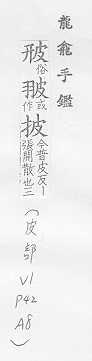 龍龕手鑑
俗
或作
披 今普皮反丨張開散也三
(皮部
V1
P42
A8)